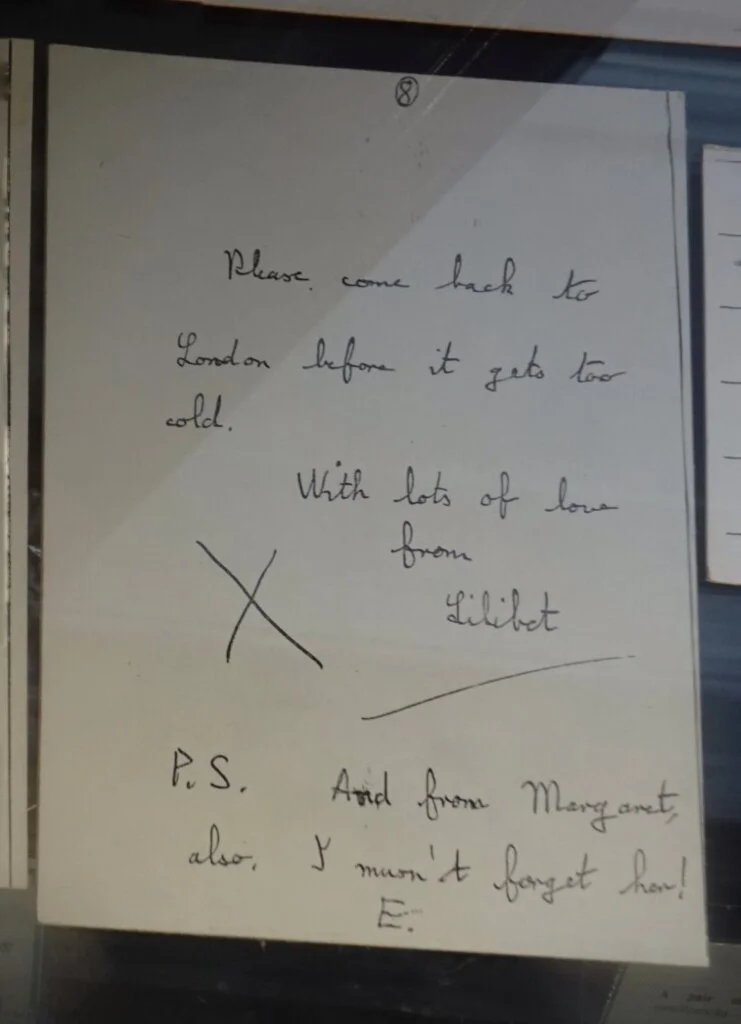 ⑧
Please come back to
London before it gets too
cold.
With lots of love
from
Lilibet
X
P.S. And from Margaret,
also. I musn't forget her!
E.
A pair